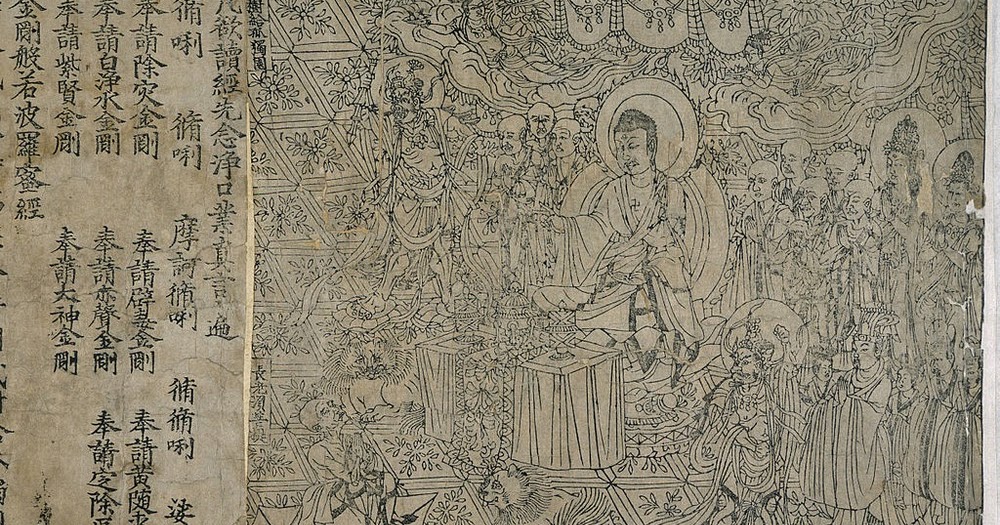 樹給孤獨園
長老須菩提
凡欲讀經先念淨口業真言一遍
脩唎 脩唎 摩訶脩唎 脩脩唎 娑
奉請除灾金剛 奉請辟毒金剛 奉請黃隨求
奉請白淨水金剛 奉請赤聲金剛 奉請定除
奉請紫賢金剛 奉請大神金剛
金剛般若波羅蜜經